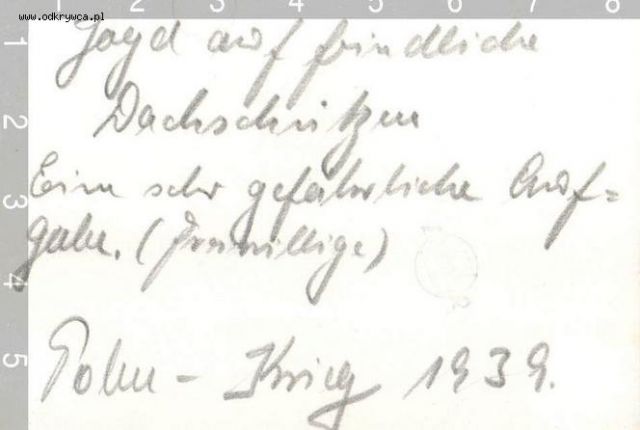 www.odkrywca.pl
1 2 3 4 5 6 7 8
Jagd auf feindliche
Dachschützen
Eine sehr gefährliche Auf=
gabe. (Freiwillige)
Polen - Krieg 1939.
1
2
3
4
5